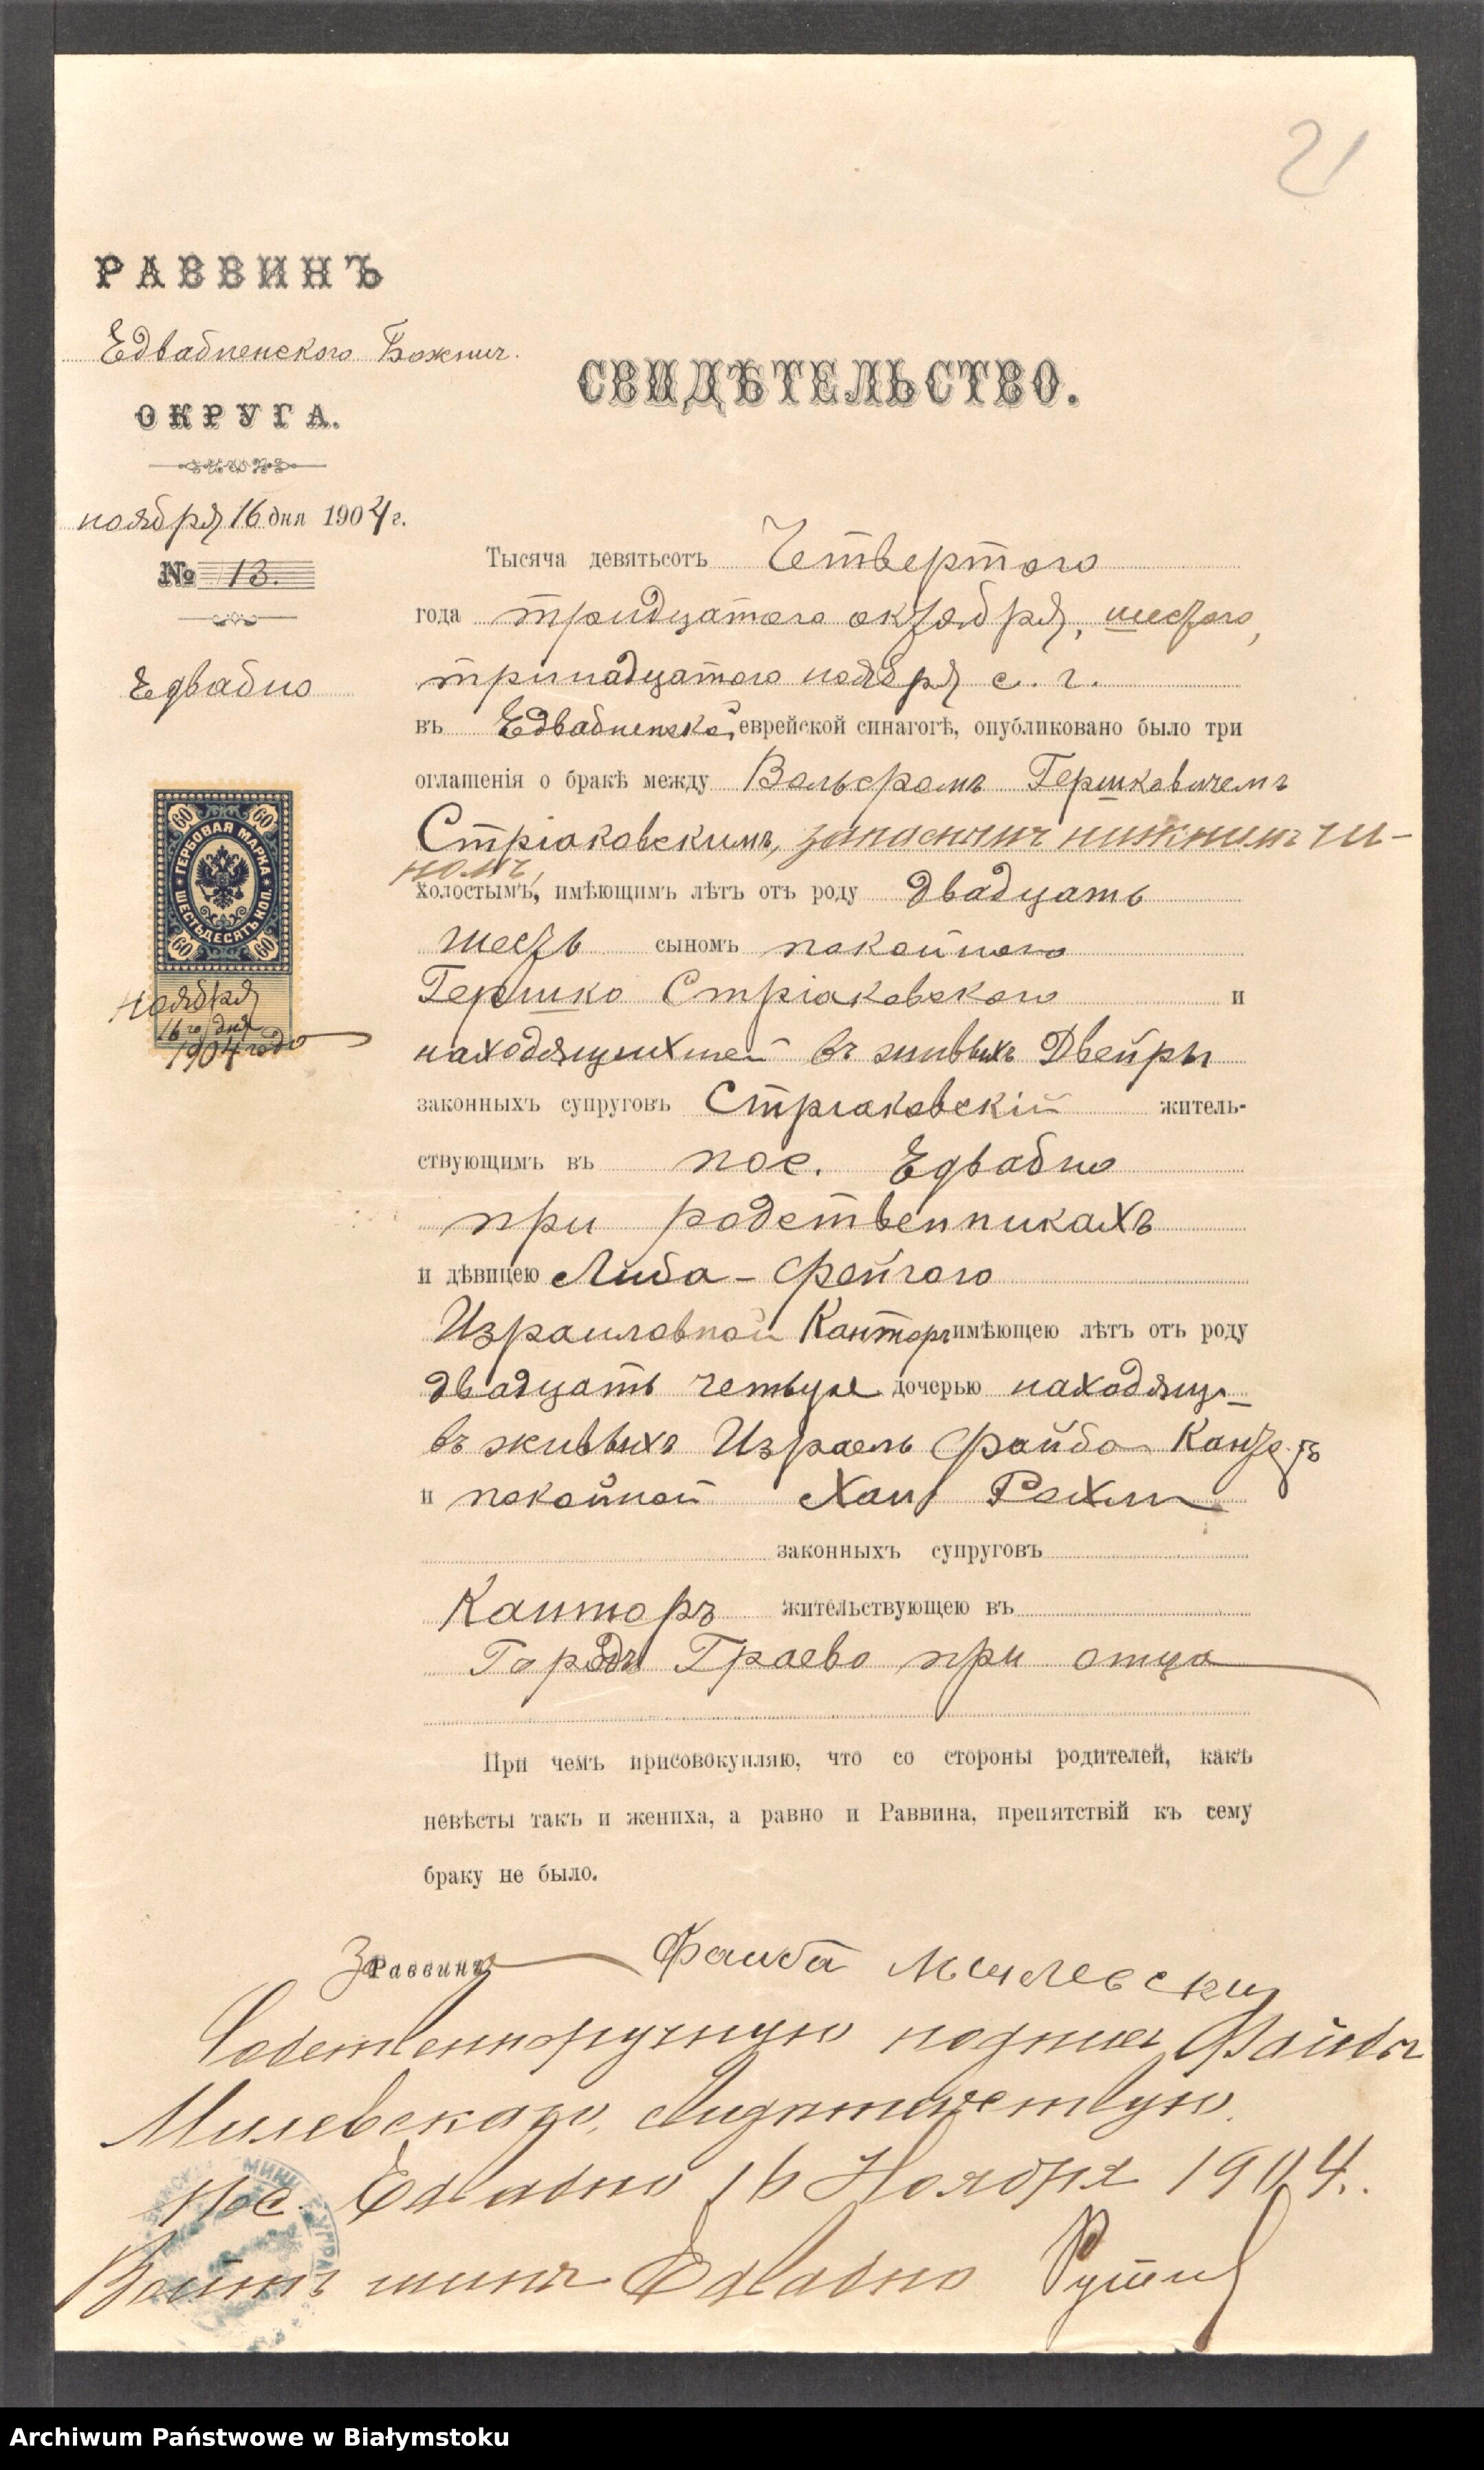 21
РАВВИНЪ
Едвабненского Божнич.
ОКРУГА.
СВИДѢТЕЛЬСТВО.
ноября 16 дня 1904 г.
№ 13.
Едвабно
60 60
ГЕРБОВАЯ МАРКА
ШЕСТЬДЕСЯТЪ КОП.
60 60
ноября
16го дня
1904 года
Тысяча девятьсотъ Четвертого
года тридцатого октября, шестого,
тринадцатого ноября с. г.
въ Едвабненской еврейской синагогѣ, опубликовано было три
оглашенія о бракѣ между Вольфромъ Гершковичемъ
Стріаковскимъ, запаснымъ нижнимъ чи-
номъ,
холостымъ, имѣющимъ лѣтъ отъ роду двадцать
шесть сыномъ покойного
Гершко Стріаковского и
находящихшей въ живыхъ Двейры
законныхъ супруговъ Стріаковскій житель-
ствующимъ въ пос. Едвабно
при родственникахъ
и дѣвицею Либа-Фейгого
Израиловной Канторъ имѣющею лѣтъ отъ роду
двадцать четыре дочерью находящ-
въ живыхъ Израель Файба Канторъ
и покойной Хаи Рохли
законныхъ супруговъ
Канторъ жительствующею въ
Городѣ Граево при отца
При чемъ присовокупляю, что со стороны родителей, какъ
невѣсты такъ и жениха, а равно и Раввина, препятствій къ сему
браку не было.
За Раввина Файба Милевски
Собственноручную подпись Файбы
Милевскаго, свидѣтельствую.
пос. Едвабно 16 Ноября 1904.
Войтъ гмины Едвабно
Archiwum Państwowe w Białymstoku